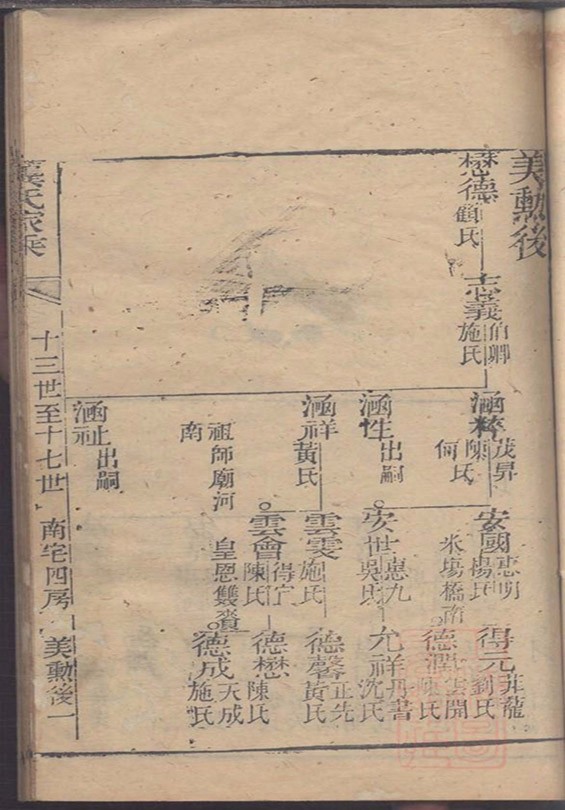 美勲後
懋德
顧氏
志義
伯卿
施氏
涵粹
茂昇
陳氏
何
涵性
出嗣
涵祥
黃氏
祖師廟河
南
涵祉
出嗣
安國
惠明
楊氏
米塲橋南
安世
惠九
吳氏
雲雯
施氏
雲會
得宁
陳氏
皇恩雙賚
得元
劉氏
德潤
雲開
陳氏
允祥
丹書
沈氏
德馨
正先
黃氏
德懋
陳氏
德成
天成
施氏
氏家乘
十三世至十七世
南宅四房
美勲後一